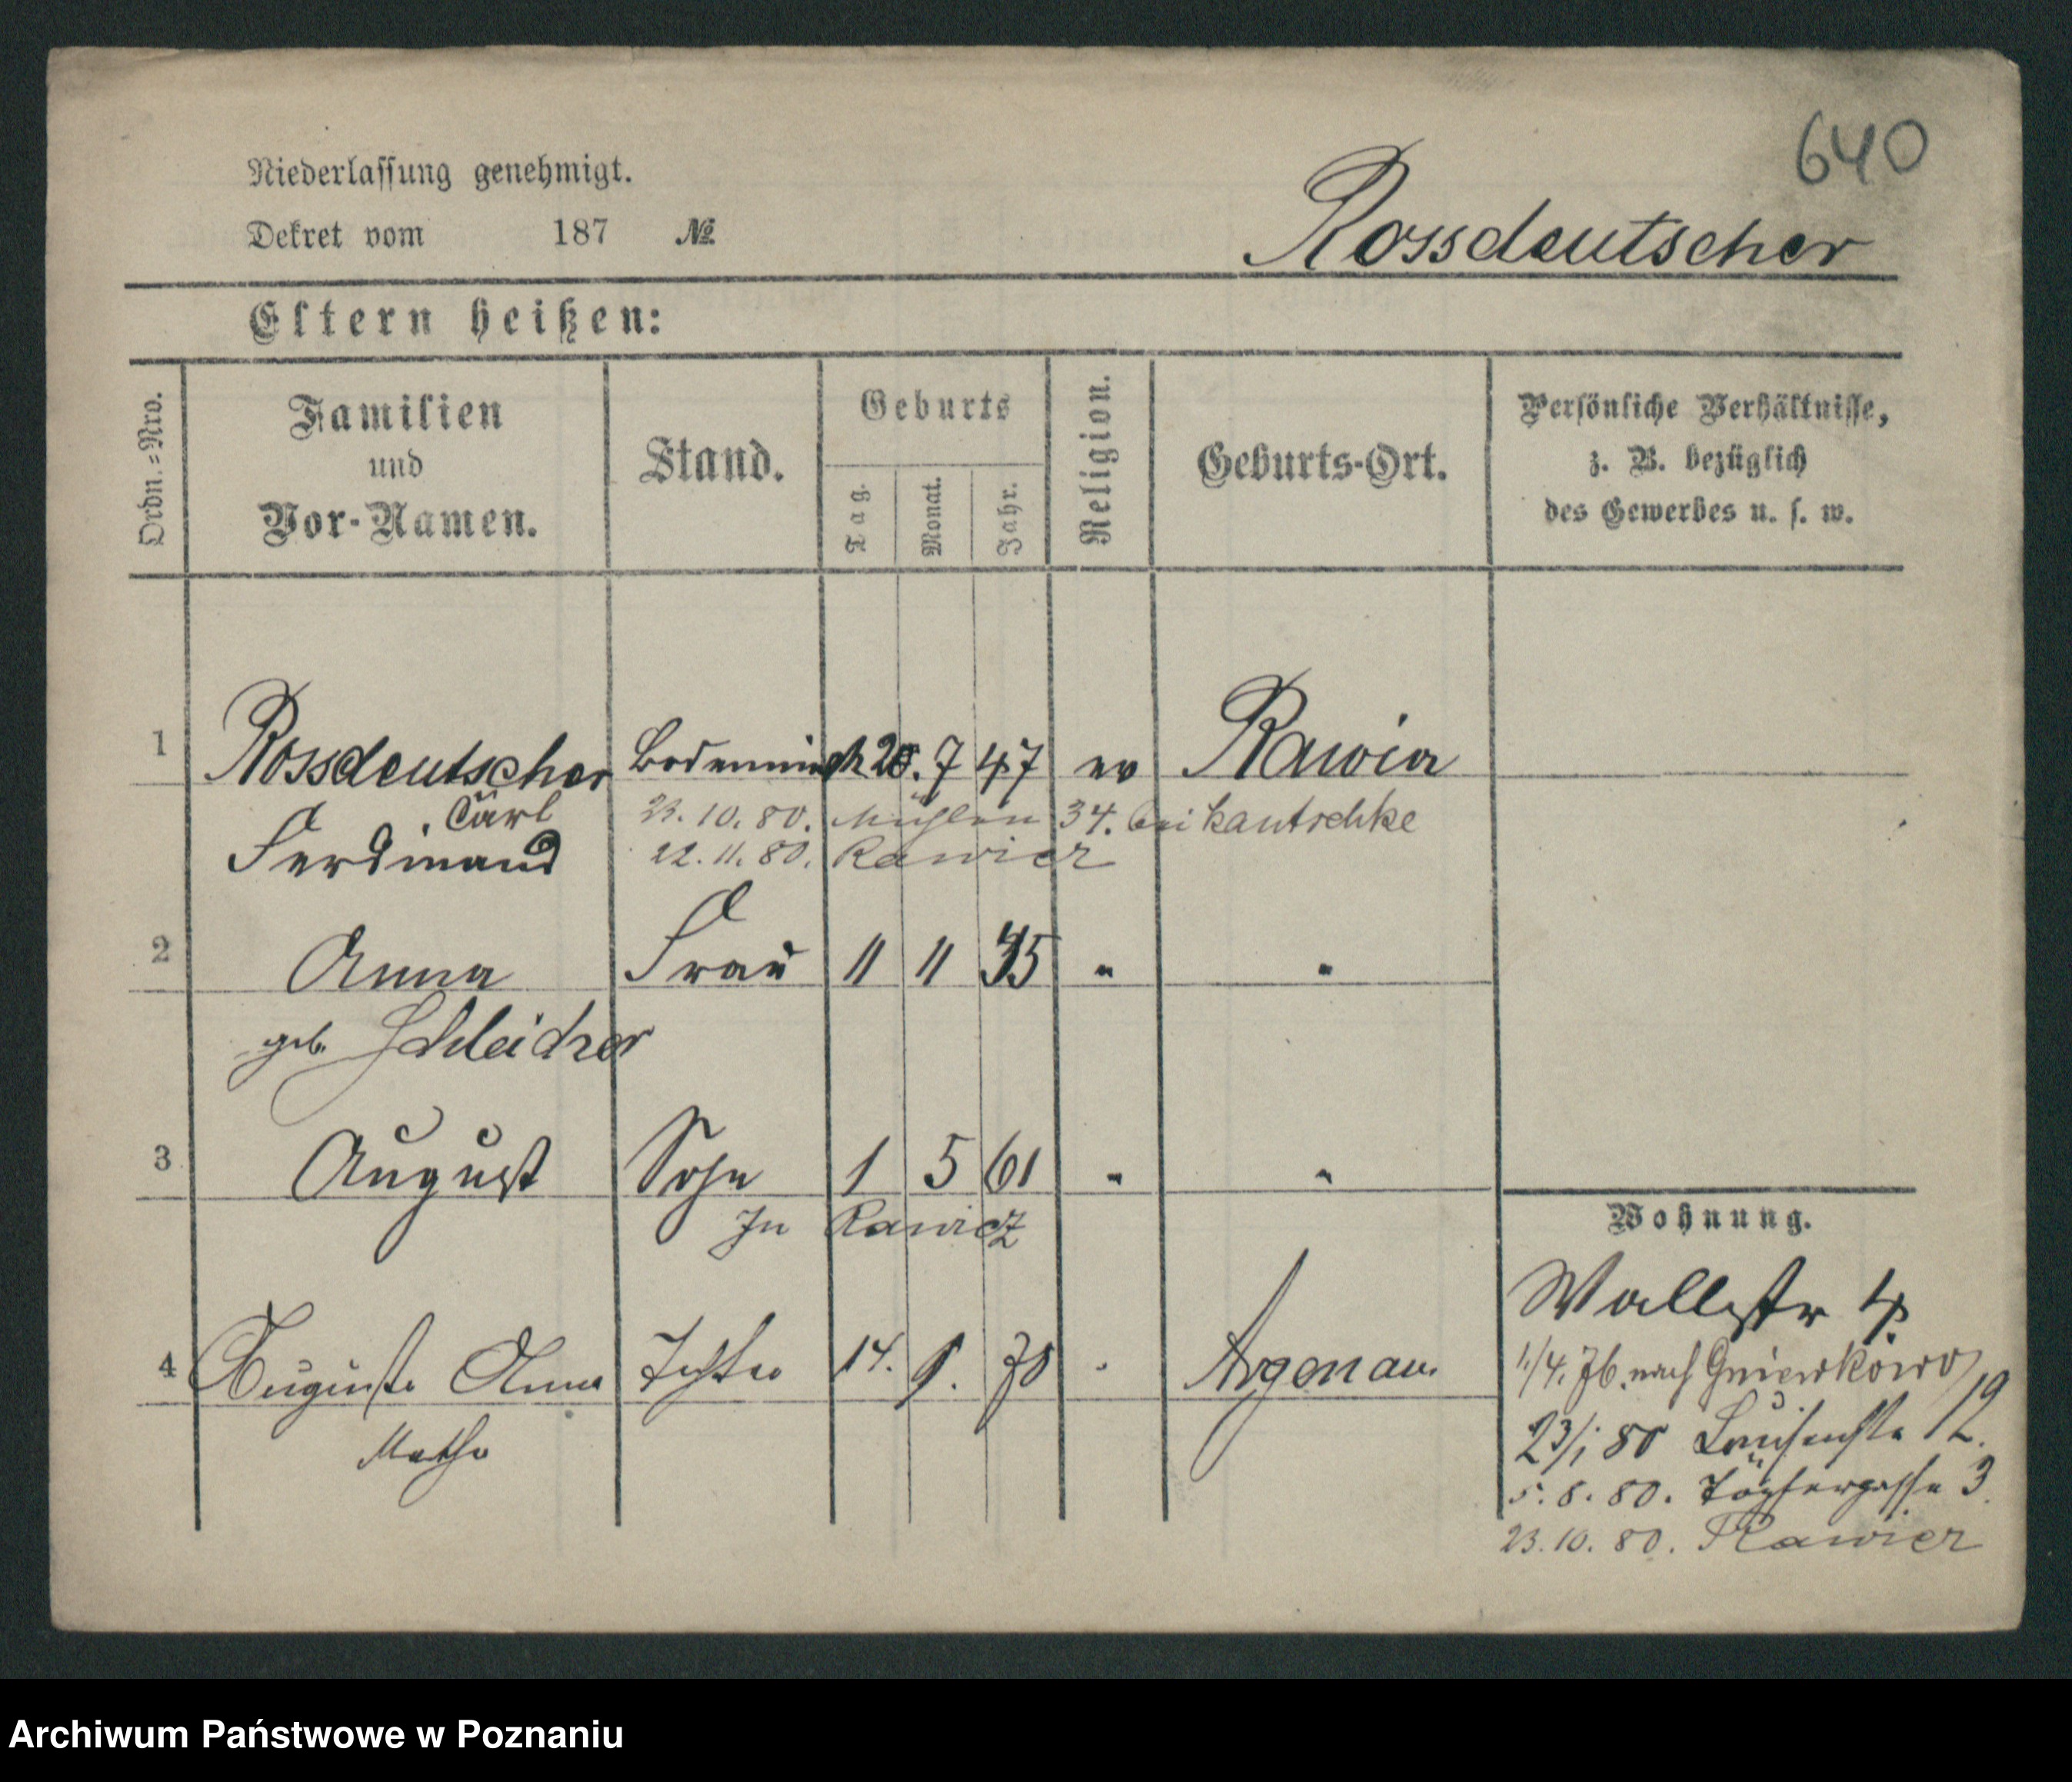 640
Niederlassung genehmigt.
Dekret vom 187 №
Rossdeutscher
Eltern heißen:
Ordn.=Nro.
Familien
und
Vor-Namen.
Stand.
Geburts
Tag.
Monat.
Jahr.
Religion.
Geburts-Ort.
Persönliche Verhältnisse,
z. B. bezüglich
des Gewerbes u. s. w.
1 Rossdeutscher 20. 7 47 ev
Carl 23.10.80. Mühlen 34. bei Kautschke
Ferdinand 22.11.80. Rawicz
2 Anna Frau 11 11 "  "
geb. Schleicher
3 August Sohn 1 5 61 " "
In Rawicz
4 Auguste Anna Tochter 14. 78 " Argenau.
Wohnung.
Wallstr 4.
1/4. 76. nach Gniewkowo
23/1 80 Louisenstr 12.
5.8.80. Töpfergasse 3.
23.10.80. Rawicz
Archiwum Państwowe w Poznaniu